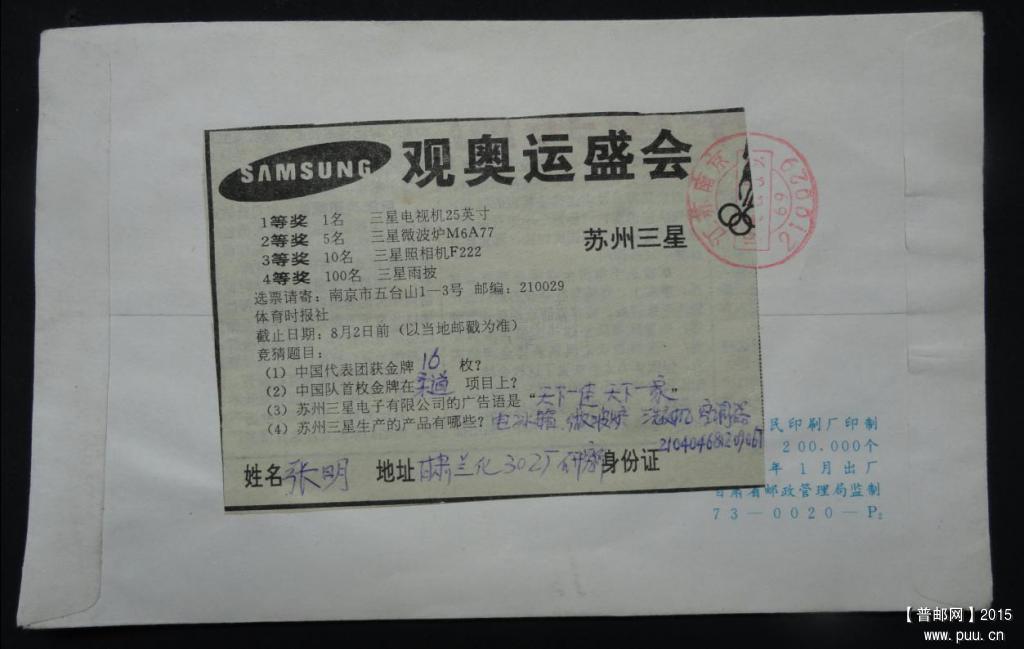 SAMSUNG 观奥运盛会
苏州三星
1等奖 1名 三星电视机25英寸
2等奖 5名 三星微波炉M6A77
3等奖 10名 三星照相机F222
4等奖 100名 三星雨披
选票请寄：南京市五台山1—3号 邮编：210029
体育时报社
截止日期：8月2日前（以当地邮戳为准）
竞猜题目：
（1）中国代表团获金牌 16 枚？
（2）中国队首枚金牌在柔道 项目上？
（3）苏州三星电子有限公司的广告语是“天下一佳 天下一家”
（4）苏州三星生产的产品有哪些？电冰箱、微波炉 洗衣机 空调器
姓名 张明 地址 甘肃兰化302厂 身份证
江苏南京
210029
民印刷厂印制
200.000个
年1月出厂
甘肃省邮政管理局监制
73—0020—P₂
【普邮网】2015
www.puu.cn